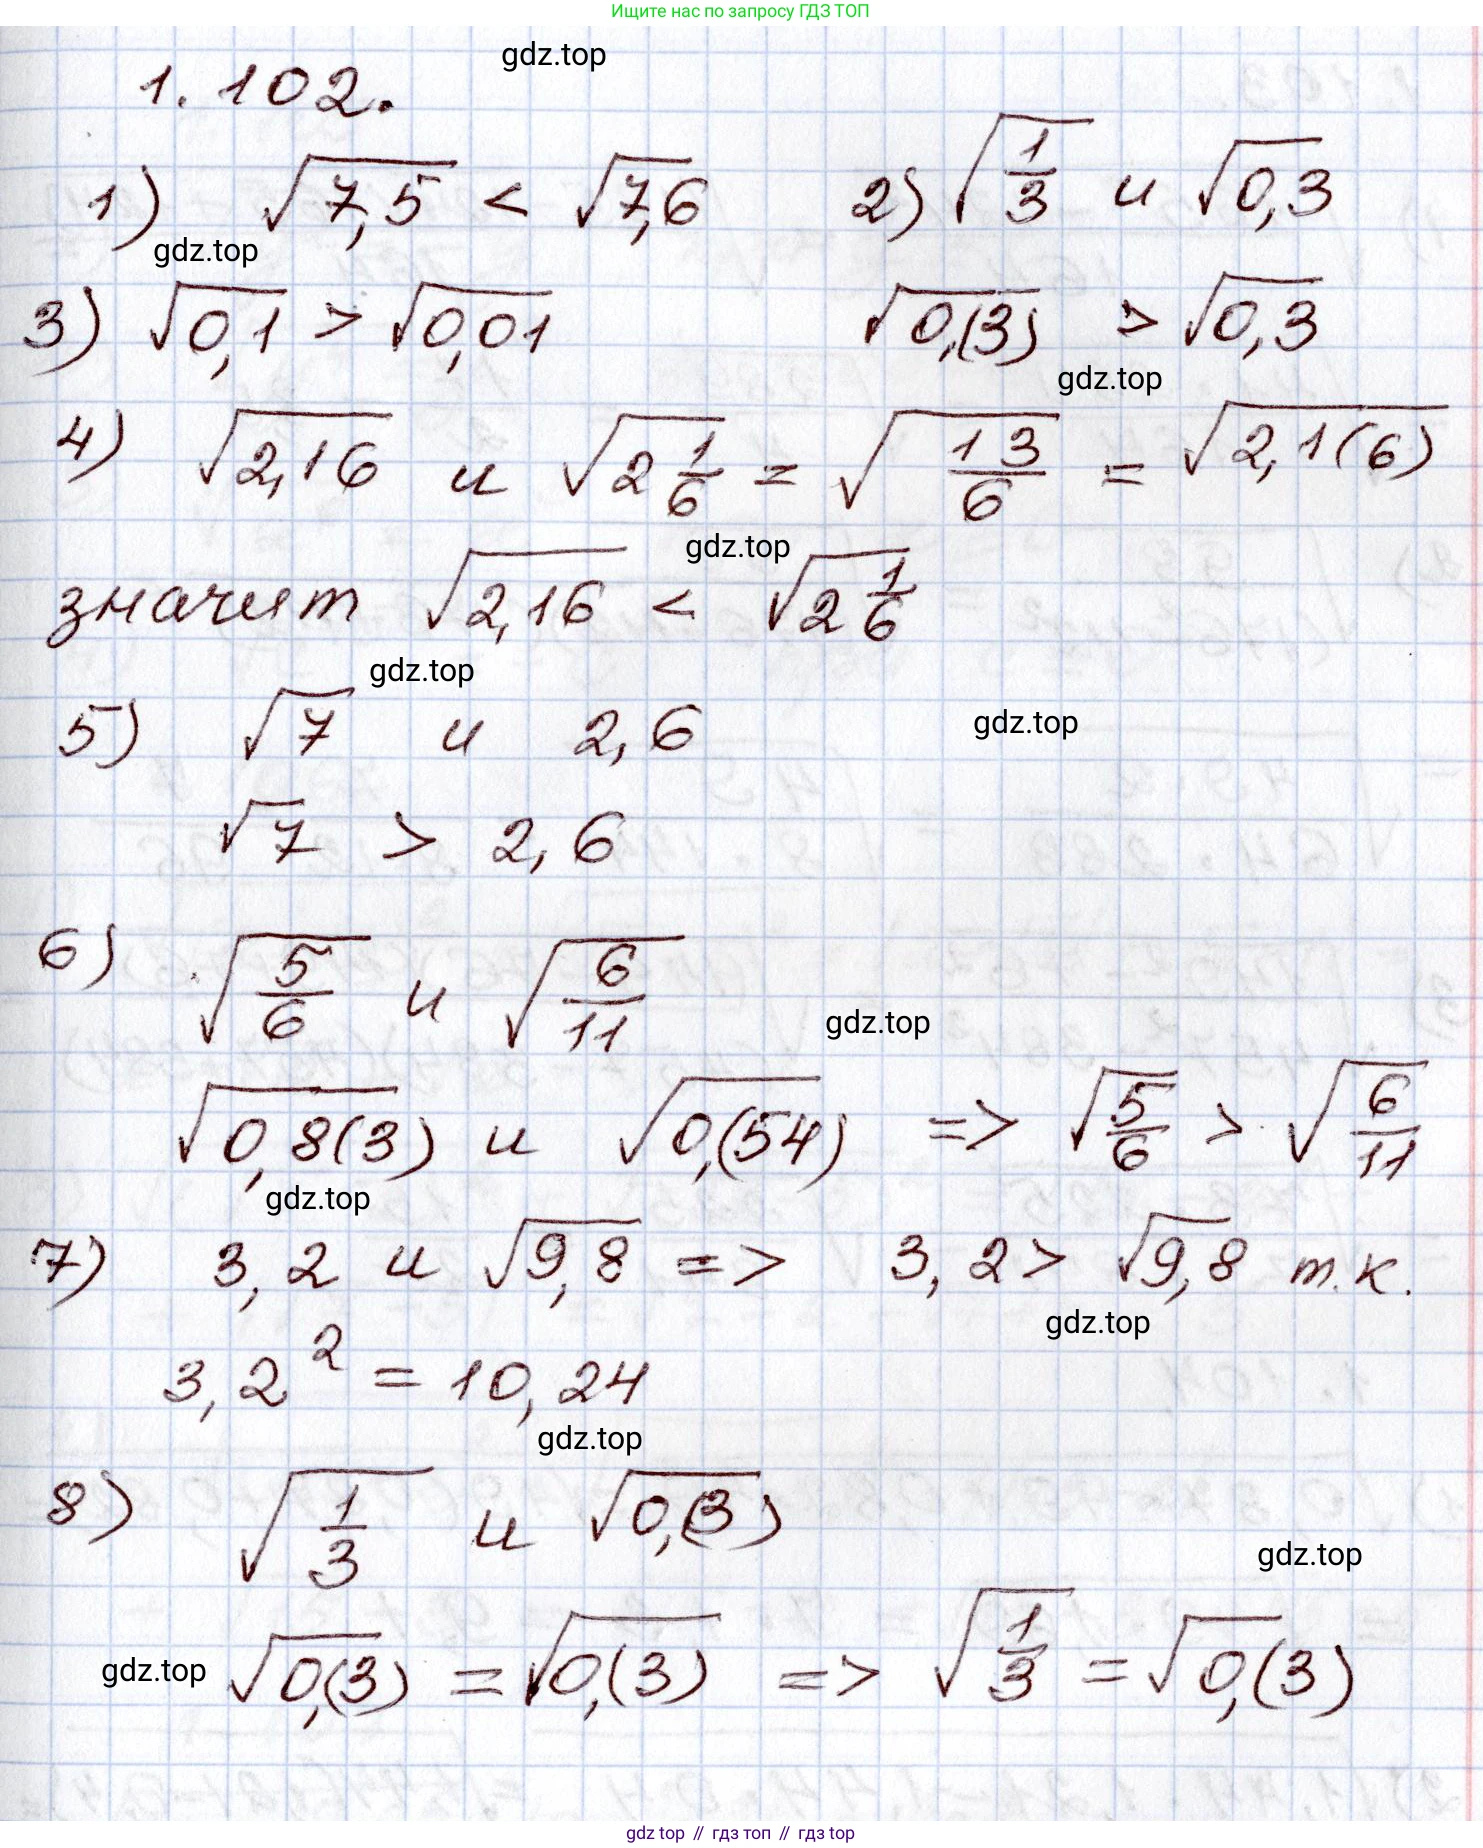 Ищите нас по запросу ГДЗ ТОП
gdz.top
1.102.
1) √7,5 < √7,6
2) √(1/3) и √0,3
gdz.top
3) √0,1 > √0,01
√0,(3) > √0,3
gdz.top
4) √2,16 и √(2 1/6) = √(13/6) = √2,1(6)
gdz.top
значит √2,16 < √(2 1/6)
gdz.top
5) √7 и 2,6
gdz.top
√7 > 2,6
6) √(5/6) и √(6/11)
gdz.top
√0,8(3) и √0,(54) => √(5/6) > √(6/11)
gdz.top
7) 3,2 и √9,8 => 3,2 > √9,8 т.к.
gdz.top
3,2² = 10,24
gdz.top
8) √(1/3) и √0,(3)
gdz.top
gdz.top
√0,(3) = √0,(3) => √(1/3) = √0,(3)
gdz.top // гдз топ // гдз top